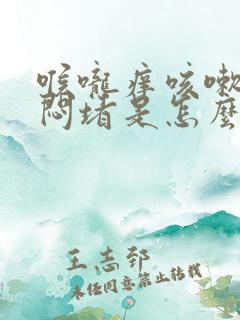 喉嚨痒咳嗽
悶堵是怎麼
王志郅
未经同意禁止转载